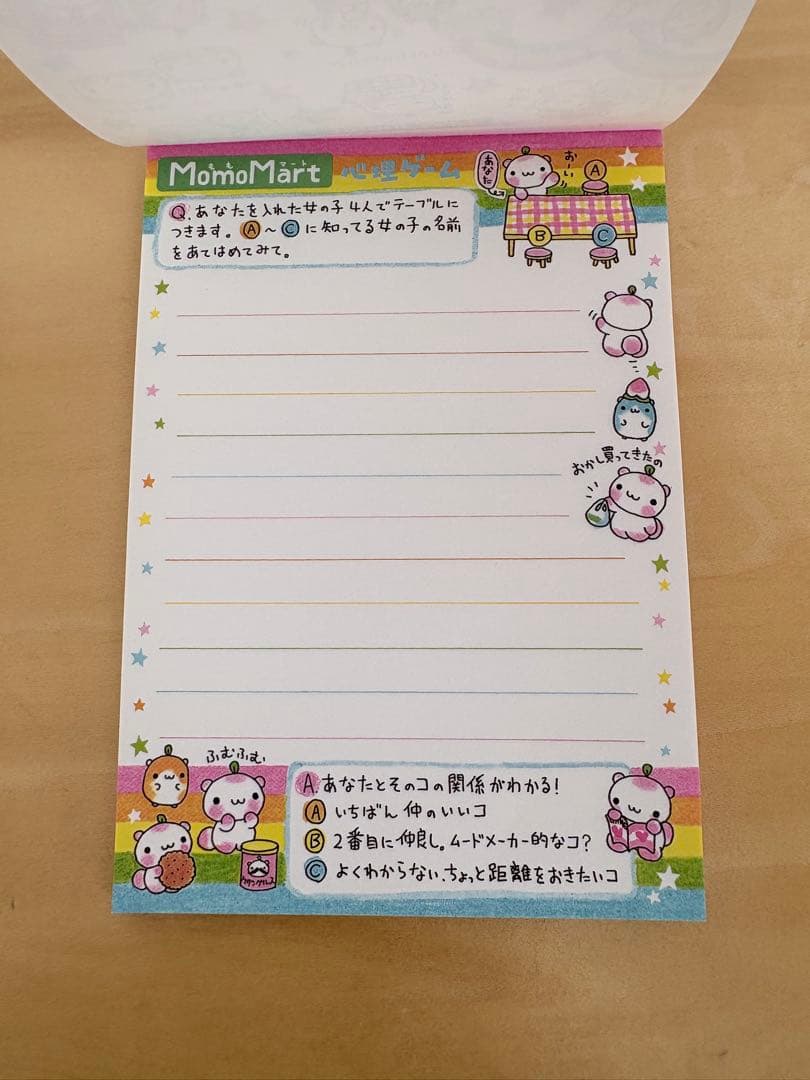 MomoMart 心理ゲーム
ももマート
あなた
おーい
A
B
C
Q.あなたを入れた女の子4人でテーブルに
つきます。A〜Cに知ってる女の子の名前
をあてはめてみて。
おかし買ってきたの
ふむふむ
A.あなたとそのコの関係がわかる!
A いちばん仲のいいコ
B 2番目に仲良し。ムードメーカー的なコ?
C よくわからない、ちょっと距離をおきたいコ